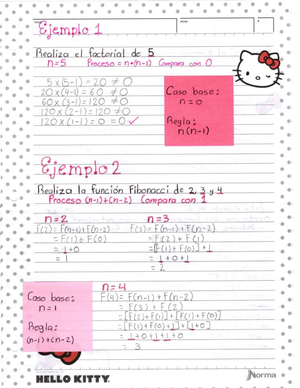 Ejemplo 1
Realiza el factorial de 5
n=5 Proceso = n*(n-1) Compara con 0
5×(5-1)=20 ≠ 0
20×(4-1)=60 ≠ 0
60×(3-1)=120 ≠ 0
120×(2-1)=120 ≠ 0
120×(1-1)=0 = 0 ✓
Caso base:
n=0
Regla:
n(n-1)
Ejemplo 2
Realiza la función Fibonacci de 2, 3 y 4
Proceso (n-1)+(n-2) Compara con 1
n=2
F(2) = F(n-1)+F(n-2)
=F(1)+F(0)
=1+0
=1
n=3
F(3) = F(n-1)+F(n-2)
=F(2)+F(1)
=[F(1)+F(0)]+1
=1+0+1
=2
n=4
F(4)= F(n-1)+F(n-2)
=F(3)+F(2)
=[F(2)+F(1)]+[F(1)+F(0)]
=[F(1)+F(0)+1]+[1+0]
=1+0+1+1+0
=3
Caso base:
n=1
Regla:
(n-1)+(n-2)
HELLO KITTY
Norma